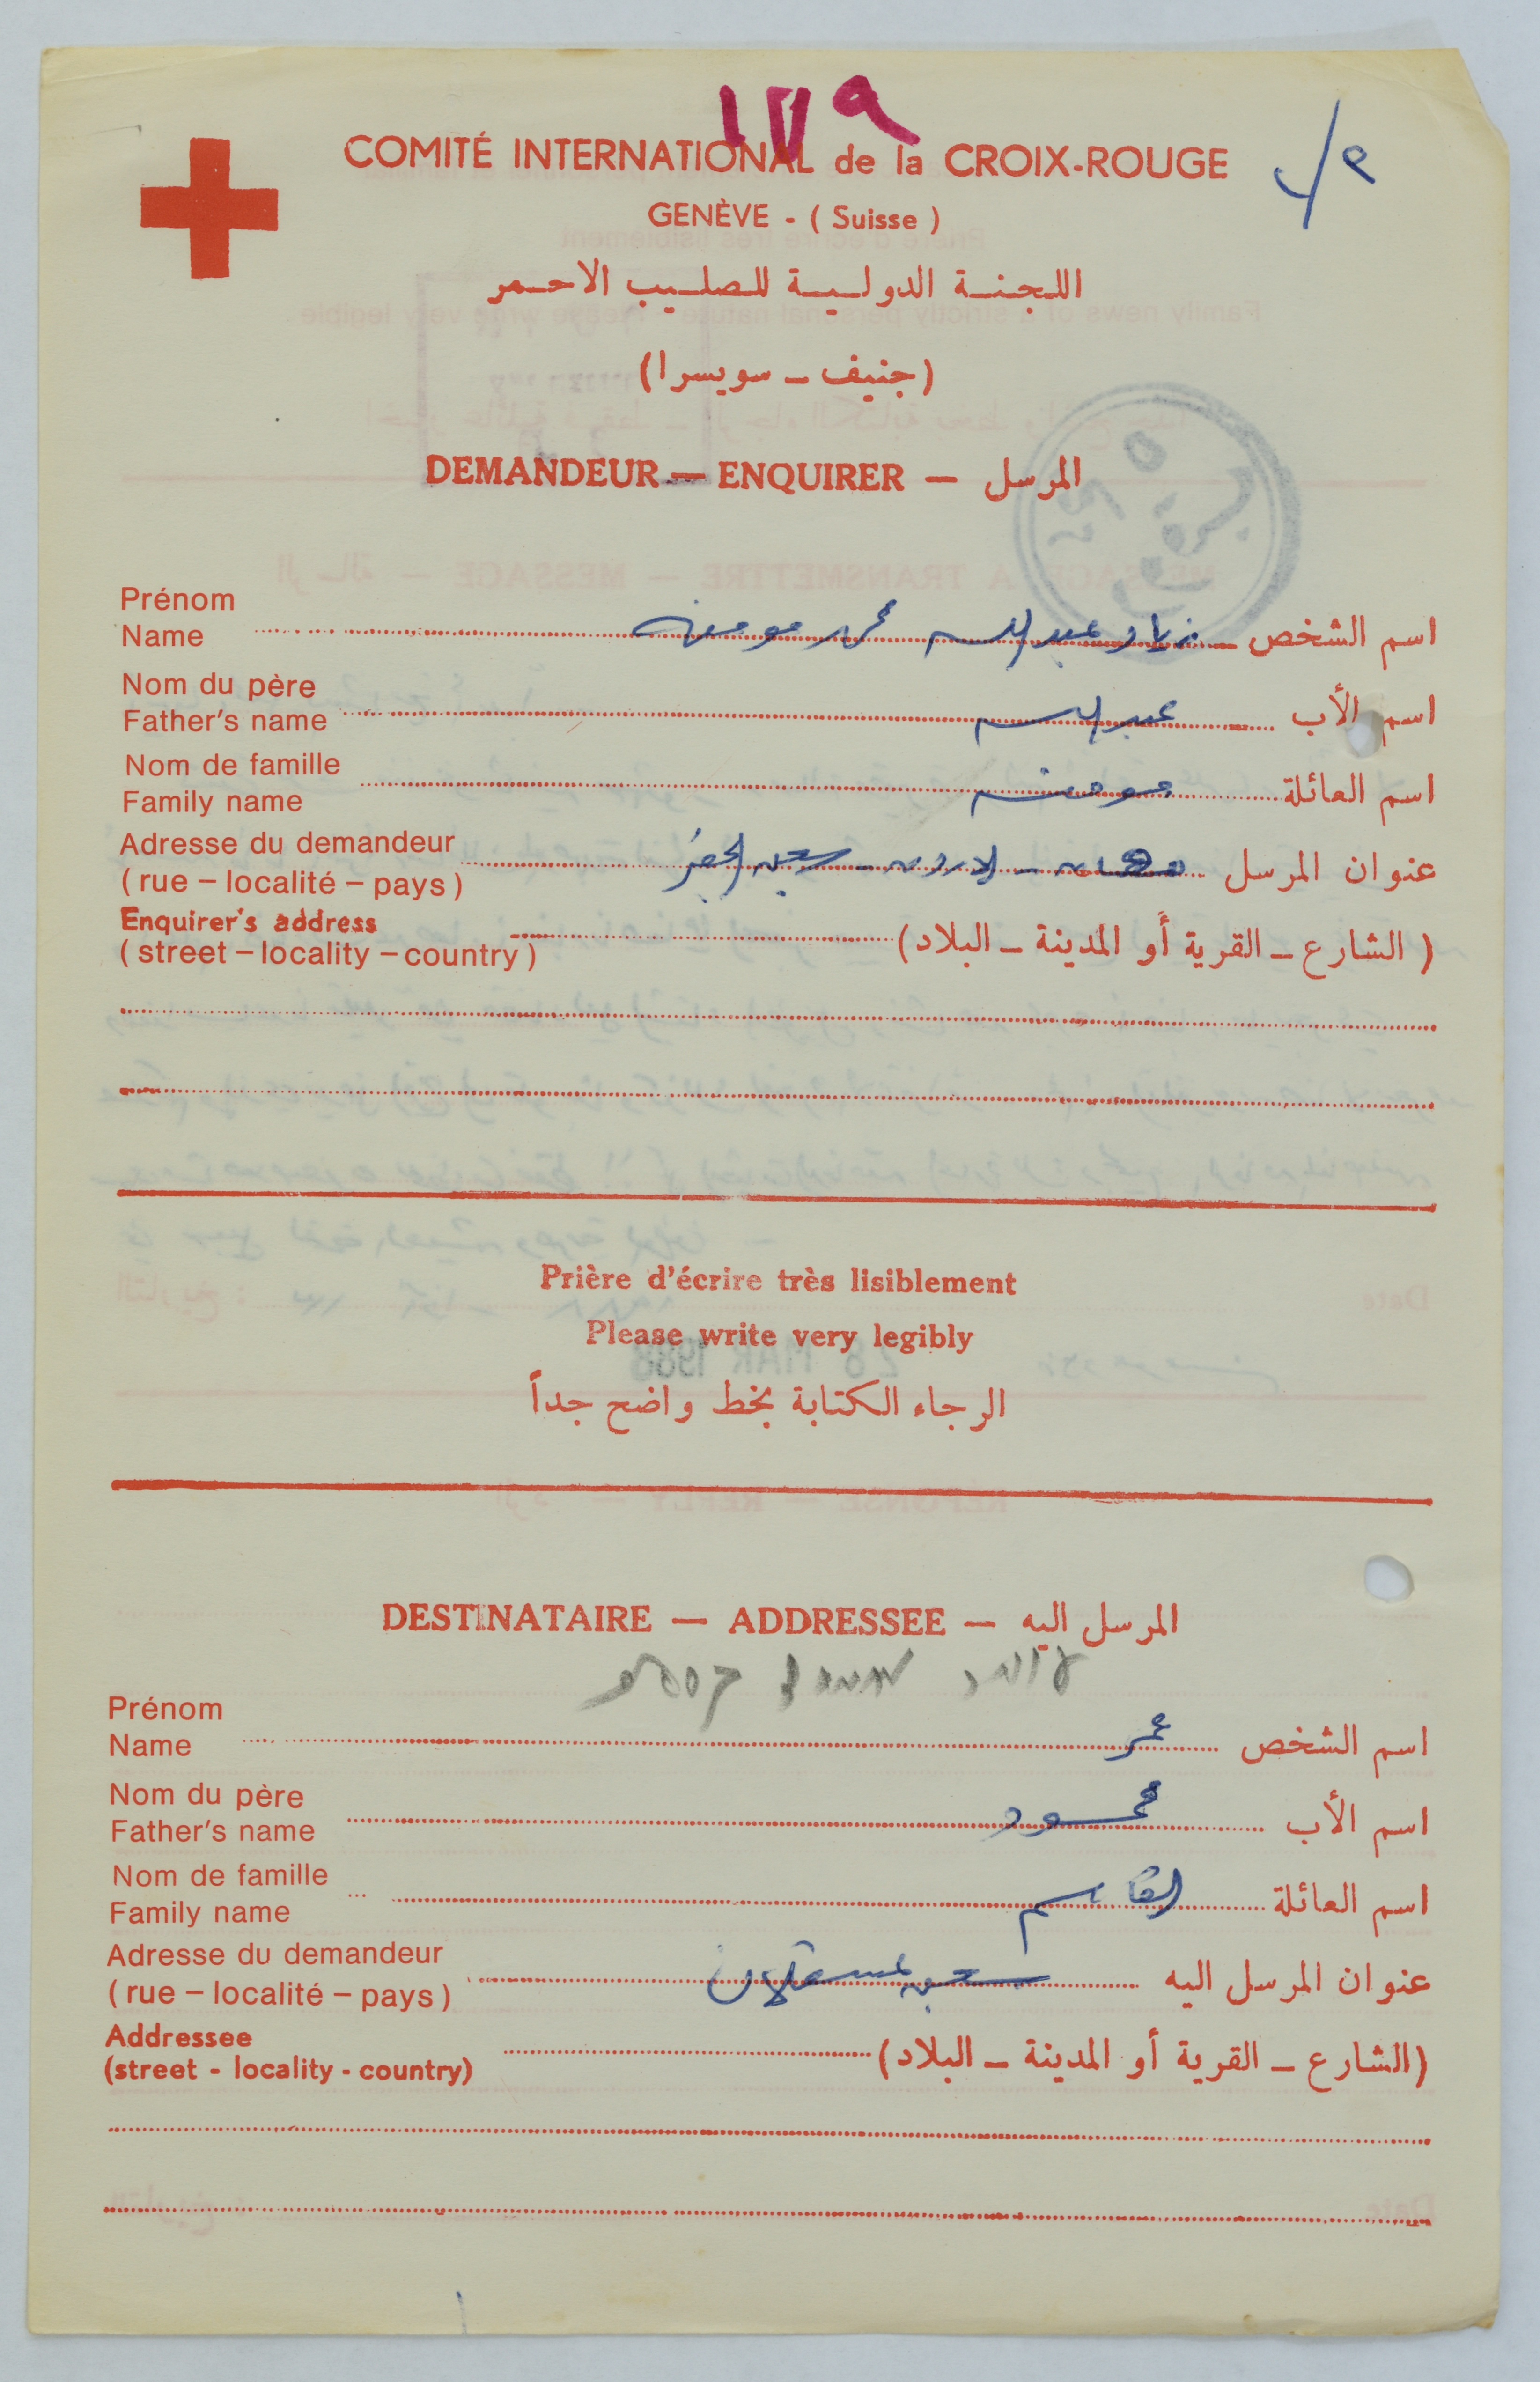 ١٧٩
COMITÉ INTERNATIONAL de la CROIX-ROUGE
GENÈVE - ( Suisse )
اللجنة الدولية للصليب الاحمر
(جنيف - سويسرا)
DEMANDEUR — ENQUIRER — المرسل
Prénom
Name اسم الشخص زياد عبد محمد مومنه
Nom du père
Father's name اسم الأب
Nom de famille
Family name اسم العائلة
Adresse du demandeur
( rue – localité – pays ) عنوان المرسل الاردن - سجن الجفر
Enquirer's address
( street – locality – country ) ( الشارع - القرية أو المدينة - البلاد)
Prière d'écrire très lisiblement
Please write very legibly
الرجاء الكتابة بخط واضح جداً
DESTINATAIRE — ADDRESSEE — المرسل اليه
Prénom
Name اسم الشخص عمر
Nom du père
Father's name اسم الأب محمود
Nom de famille
Family name اسم العائلة القاسم
Adresse du demandeur
( rue – localité – pays ) عنوان المرسل اليه سجن عسقلان
Addressee
(street - locality - country) (الشارع - القرية أو المدينة - البلاد)
28 MAR 1988